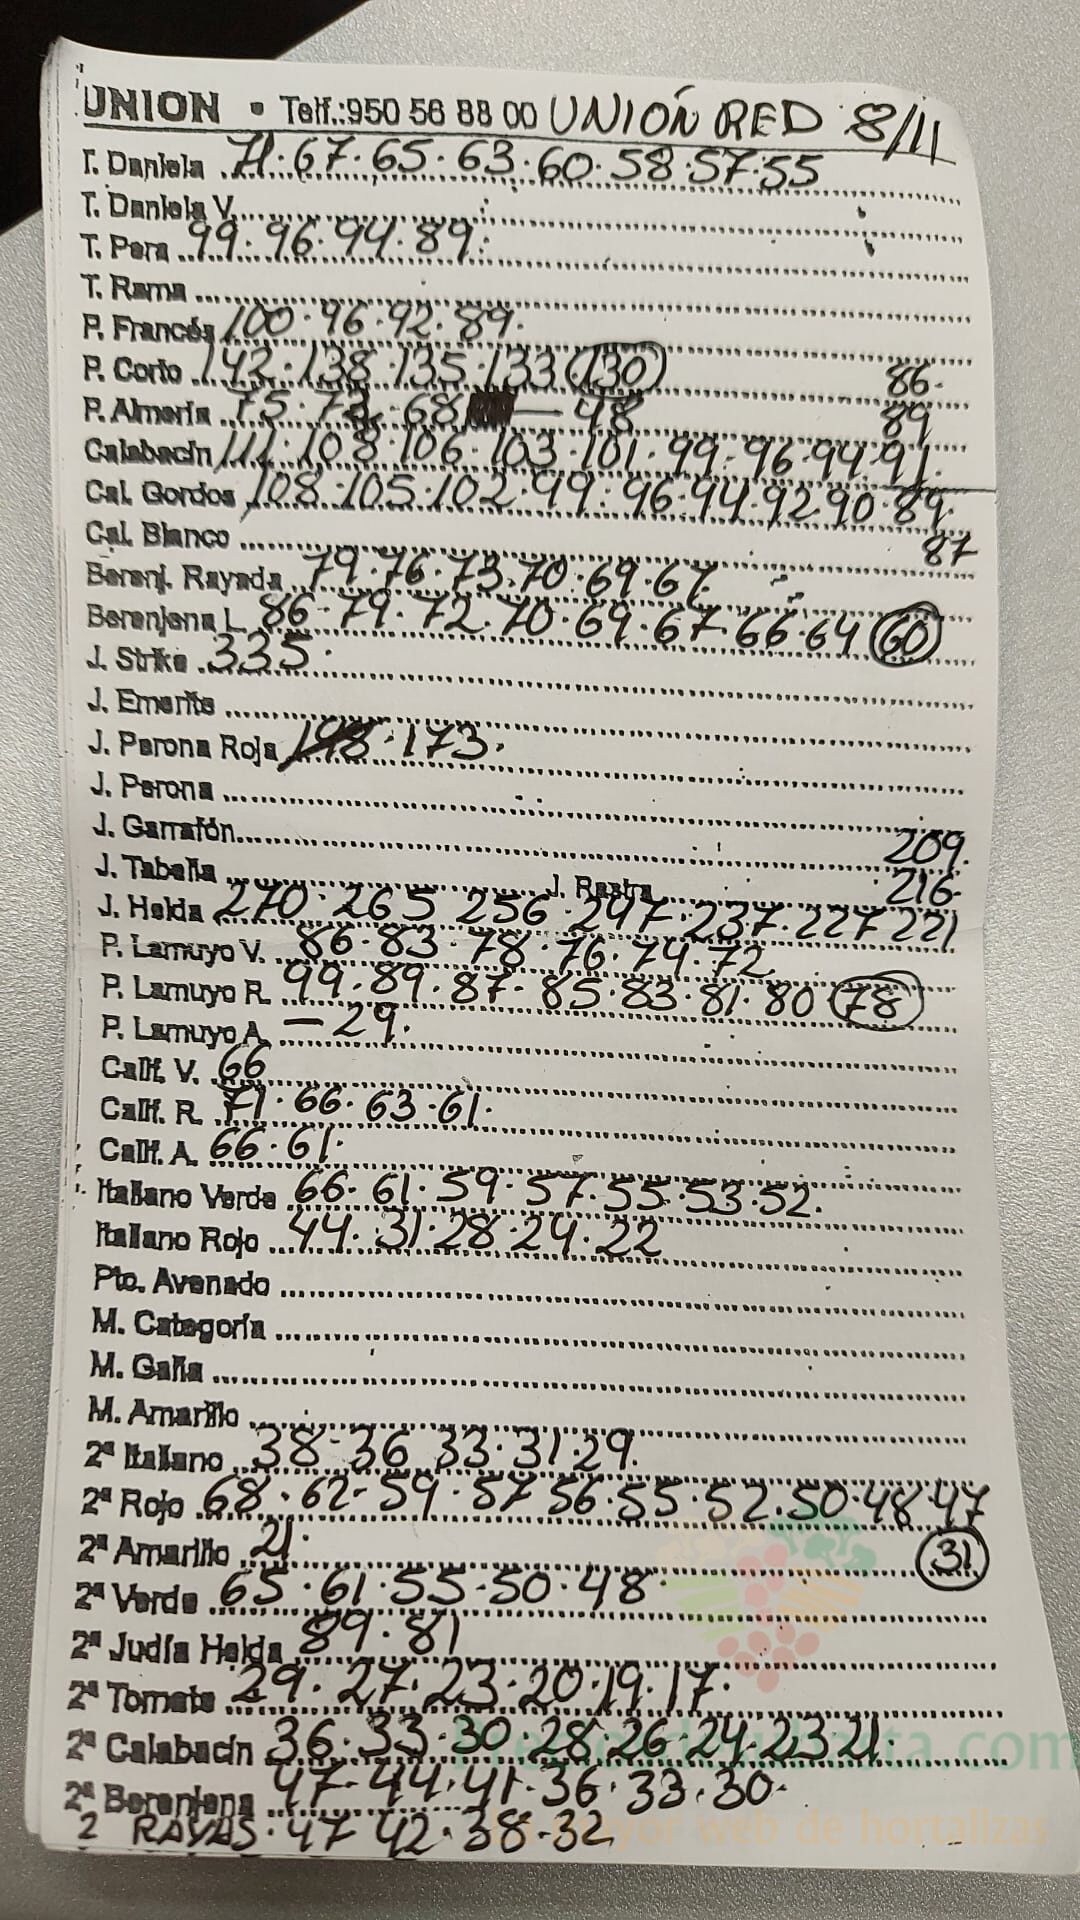 UNION • Telf.:950 56 88 00 UNIÓN RED 8/11
T. Daniela 71·67·65·63·60·58·57·55
T. Daniela V.
T. Pera 99·96·94·89·
T. Rama
P. Francés 100·96·92·89·
P. Corto 142·138·135·133 (130) 86·
P. Almería 75·72·68 — 48 89
Calabacín 111·108·106·103·101·99·96·94·91·
Cal. Gordos 108·105·102·99·96·94·92·90·89·
Cal. Blanco 87
Berenj. Rayada 79·76·73·70·69·67
Berenjena L. 86-79·72·70·69·67·66·64 (60)
J. Strike 335·
J. Emerite
J. Perona Roja 198·173·
J. Perona
J. Garrafón 209·
J. Tabella J. Rastra 216·
J. Helda 270·265 256·247·237·227 221
P. Lamuyo V. 86·83·78·76·74·72
P. Lamuyo R. 99·89·87·85·83·81·80 (78)
P. Lamuyo A. —29·
Calif. V. 66
Calif. R. 71·66·63·61·
Calif. A. 66·61·
Italiano Verde 66·61·59·57·55·53·52·
Italiano Rojo 44·31·28·24·22
Pto. Avenado
M. Categoría
M. Galia
M. Amarillo
2ª Italiano 38-36 33·31·29·
2ª Rojo 68·62-59·57 56·55·52·50·48·47
2ª Amarillo 21· (31)
2ª Verde 65·61·55-50·48·
2ª Judía Helda 89·81
2ª Tomate 29·27·23·20·19·17·
2ª Calabacín 36·33·30·28·26·24·23·21·
2ª Berenjena 47-44·41·36·33·30·
2 RAYAS·47 42·38-32